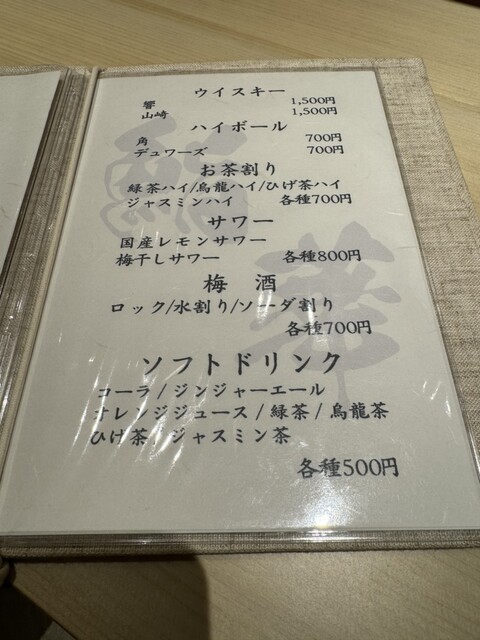 ウイスキー
響 1,500円
山崎 1,500円
ハイボール
角 700円
デュワーズ 700円
お茶割り
緑茶ハイ/烏龍ハイ/ひげ茶ハイ
ジャスミンハイ 各種700円
サワー
国産レモンサワー
梅干しサワー 各種800円
梅 酒
ロック/水割り/ソーダ割り
各種700円
ソフトドリンク
コーラ/ジンジャーエール
オレンジジュース/緑茶/烏龍茶
ひげ茶/ジャスミン茶
各種500円